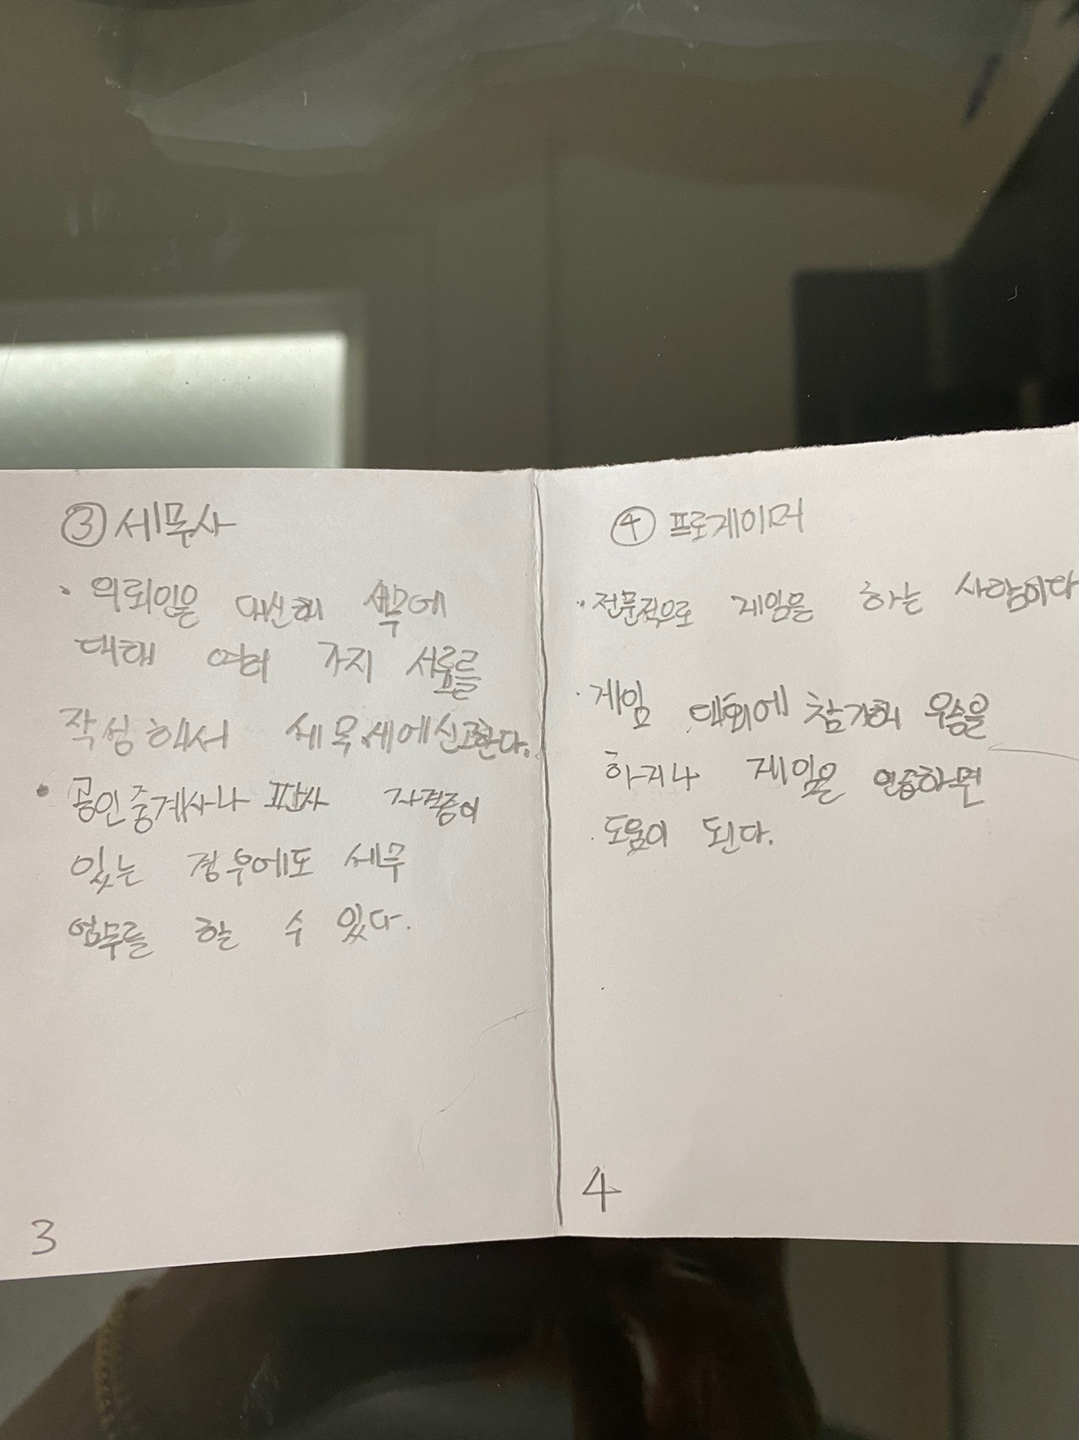 ③ 세무사
· 의뢰인을 대신해 세무에
대해 여러 가지 서류를
작성해서 세무서에 신고한다.
· 공인중개사나 판사 자격증이
있는 경우에도 세무
업무를 할 수 있다.
3
④ 프로게이머
· 전문적으로 게임을 하는 사람이다
· 게임 대회에 참가해 우승을
하거나 게임을 연습하면
도움이 된다.
4